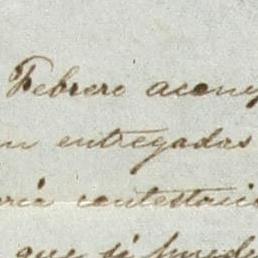 Febrero acom
n entregadas
aria contestaci
que si pued